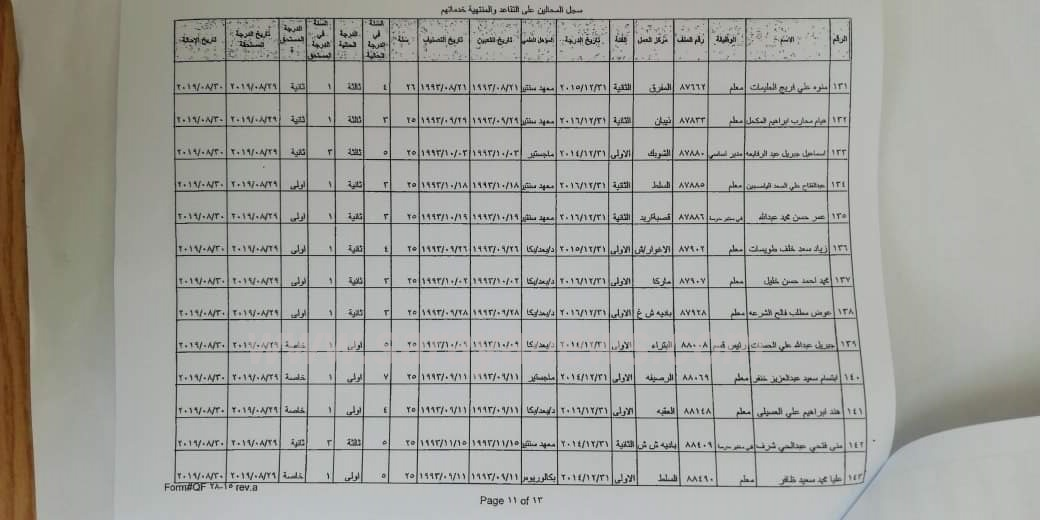 سجل المحالين على التقاعد والمنتهية خدماتهم
الرقم الاسم الوظيفة رقم الملف مركز العمل الفئة تاريخ الدرجة المؤهل العلمي تاريخ التعيين تاريخ التصنيف سنة السنة في الدرجة الحالية الدرجة الحالية السنة في الدرجة المستحق الدرجة المستحق ة تاريخ الدرجة المستحقة تاريخ الإحالة
١٣١ منوه علي فريج الحليمات معلم ٨٧٦٦٢ المفرق الثانية ٢٠١٥/١٢/٣١ معهد سنتين ١٩٩٣/٠٨/٢١ ١٩٩٣/٠٨/٢١ ٢٦ ٤ ثالثة ١ ثانية ٢٠١٩/٠٨/٢٩ ٢٠١٩/٠٨/٣٠
١٣٢ هيام محارب ابراهيم المكحل معلم ٨٧٨٣٣ ذيبان الثانية ٢٠١٦/١٢/٣١ معهد سنتين ١٩٩٣/٠٩/٢٩ ١٩٩٣/٠٩/٢٩ ٢٥ ٣ ثالثة ١ ثانية ٢٠١٩/٠٨/٢٩ ٢٠١٩/٠٨/٣٠
١٣٣ اسماعيل جبريل عيد الرفايعه مدير اساسي ٨٧٨٨٠ الشوبك الاولى ٢٠١٤/١٢/٣١ ماجستير ١٩٩٣/١٠/٠٣ ١٩٩٣/١٠/٠٣ ٢٥ ٥ ثالثة ٣ ثانية ٢٠١٩/٠٨/٢٩ ٢٠١٩/٠٨/٣٠
١٣٤ عبدالفتاح علي السعد معلم ٨٧٨٨٥ السلط الثانية ٢٠١٦/١٢/٣١ معهد سنتين ١٩٩٣/١٠/١٨ ١٩٩٣/١٠/١٨ ٢٥ ٣ ثانية ١ اولى ٢٠١٩/٠٨/٢٩ ٢٠١٩/٠٨/٣٠
١٣٥ عمر حسن محمد عبدالله ٨٧٨٨٦ قصبة اربد الثانية ٢٠١٦/١٢/٣١ معهد سنتين ١٩٩٣/١٠/١٩ ١٩٩٣/١٠/١٩ ٢٥ ٣ ثانية ١ اولى ٢٠١٩/٠٨/٢٩ ٢٠١٩/٠٨/٣٠
١٣٦ زياد سعد خلف طويسات معلم ٨٧٩٠٢ الاغوار/ش الاولى ٢٠١٥/١٢/٣١ د/بعد/بكا ١٩٩٣/٠٩/٢٦ ١٩٩٣/٠٩/٢٦ ٢٥ ٤ ثانية ١ اولى ٢٠١٩/٠٨/٢٩ ٢٠١٩/٠٨/٣٠
١٣٧ محمد احمد حسن خليل معلم ٨٧٩٠٧ ماركا الاولى ٢٠١٦/١٢/٣١ د/بعد/بكا ١٩٩٣/١٠/٠٢ ١٩٩٣/١٠/٠٢ ٢٥ ٣ ثانية ١ اولى ٢٠١٩/٠٨/٢٩ ٢٠١٩/٠٨/٣٠
١٣٨ عوض مطلب فالح الشرعه معلم ٨٧٩٢٨ باديه ش غ الاولى ٢٠١٦/١٢/٣١ د/بعد/بكا ١٩٩٣/٠٩/٢٨ ١٩٩٣/٠٩/٢٨ ٢٥ ٣ ثانية ١ اولى ٢٠١٩/٠٨/٢٩ ٢٠١٩/٠٨/٣٠
١٣٩ جبريل عبدالله علي الحسنات رئيس قسم ٨٨٠٠٨ البتراء الاولى ٢٠١٤/١٢/٣١ د/بعد/بكا ١٩٩٣/١٠/٠٩ ١٩٩٣/١٠/٠٩ ٢٥ ٥ اولى ١ خاصة ٢٠١٩/٠٨/٢٩ ٢٠١٩/٠٨/٣٠
١٤٠ ابتسام سعيد عبدالعزيز خنفر معلم ٨٨٠٦٩ الرصيفه الاولى ٢٠١٤/١٢/٣١ ماجستير ١٩٩٣/٠٩/١١ ١٩٩٣/٠٩/١١ ٢٥ ٧ اولى ١ خاصة ٢٠١٩/٠٨/٢٩ ٢٠١٩/٠٨/٣٠
١٤١ هند ابراهيم علي الحسيلي معلم ٨٨١٤٨ العقبه الاولى ٢٠١٦/١٢/٣١ د/بعد/بكا ١٩٩٣/٠٩/١١ ١٩٩٣/٠٩/١١ ٢٥ ٤ اولى ١ خاصة ٢٠١٩/٠٨/٢٩ ٢٠١٩/٠٨/٣٠
١٤٢ منى فتحي عبدالحي شرف ٨٨٤٠٩ باديه ش ش الثانية ٢٠١٤/١٢/٣١ معهد سنتين ١٩٩٣/١١/١٥ ١٩٩٣/١١/١٥ ٢٥ ٥ ثالثة ٣ ثانية ٢٠١٩/٠٨/٢٩ ٢٠١٩/٠٨/٣٠
١٤٣ عليا محمد سعيد ظافر معلم ٨٨٤٩٠ السلط الاولى ٢٠١٤/١٢/٣١ بكالوريوس ١٩٩٣/٠٩/١١ ١٩٩٣/٠٩/١١ ٢٥ ٥ اولى ١ خاصة ٢٠١٩/٠٨/٢٩ ٢٠١٩/٠٨/٣٠
Form#QF ٢٨-١٥ rev.a
Page ١١ of ١٣